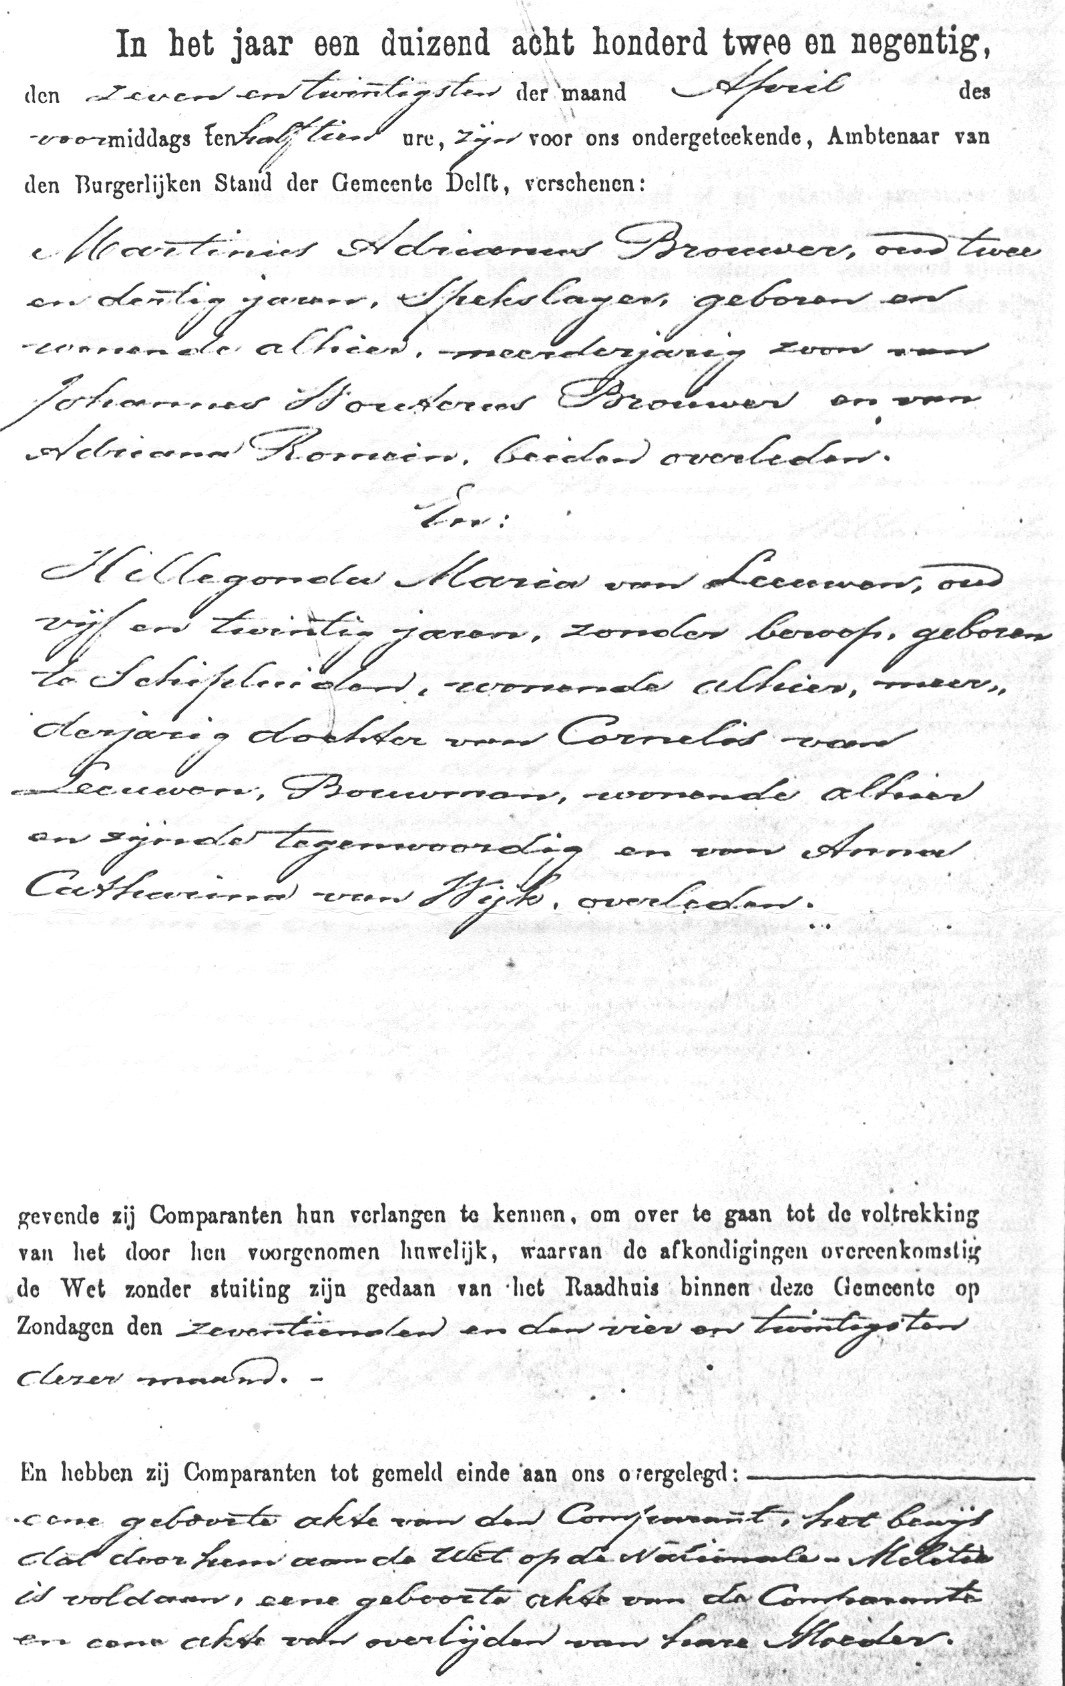 In het jaar een duizend acht honderd twee en negentig,
den zeven en twintigsten der maand April des
voormiddags ten half tien ure, zijn voor ons ondergeteekende, Ambtenaar van
den Burgerlijken Stand der Gemeente Delft, verschenen:
Martinus Adrianus Brouwer, oud twee
en dertig jaren, Spekslager, geboren en
wonende alhier, meerderjarig zoon van
Johannes Wouterus Brouwer en van
Adriana Romein, beiden overleden.
En:
Hillegonda Maria van Leeuwen, oud
vijf en twintig jaren, zonder beroep, geboren
te Schipluiden, wonende alhier, meer„
derjarig dochter van Cornelis van
Leeuwen, Bouwman, wonende alhier
en zijnde tegenwoordig en van Anna
Catharina van Wijk, overleden.
gevende zij Comparanten hun verlangen te kennen, om over te gaan tot de voltrekking
van het door hen voorgenomen huwelijk, waarvan de afkondigingen overeenkomstig
de Wet zonder stuiting zijn gedaan van het Raadhuis binnen deze Gemeente op
Zondagen den zeventienden en den vier en twintigsten
dezer maand. -
En hebben zij Comparanten tot gemeld einde aan ons overgelegd:
eene geboorte akte van den Comparant, het bewijs
dat door hem aan de Wet op de Nationale Militie
is voldaan, eene geboorte akte van de Comparante
en eene akte van overlijden van hare Moeder.